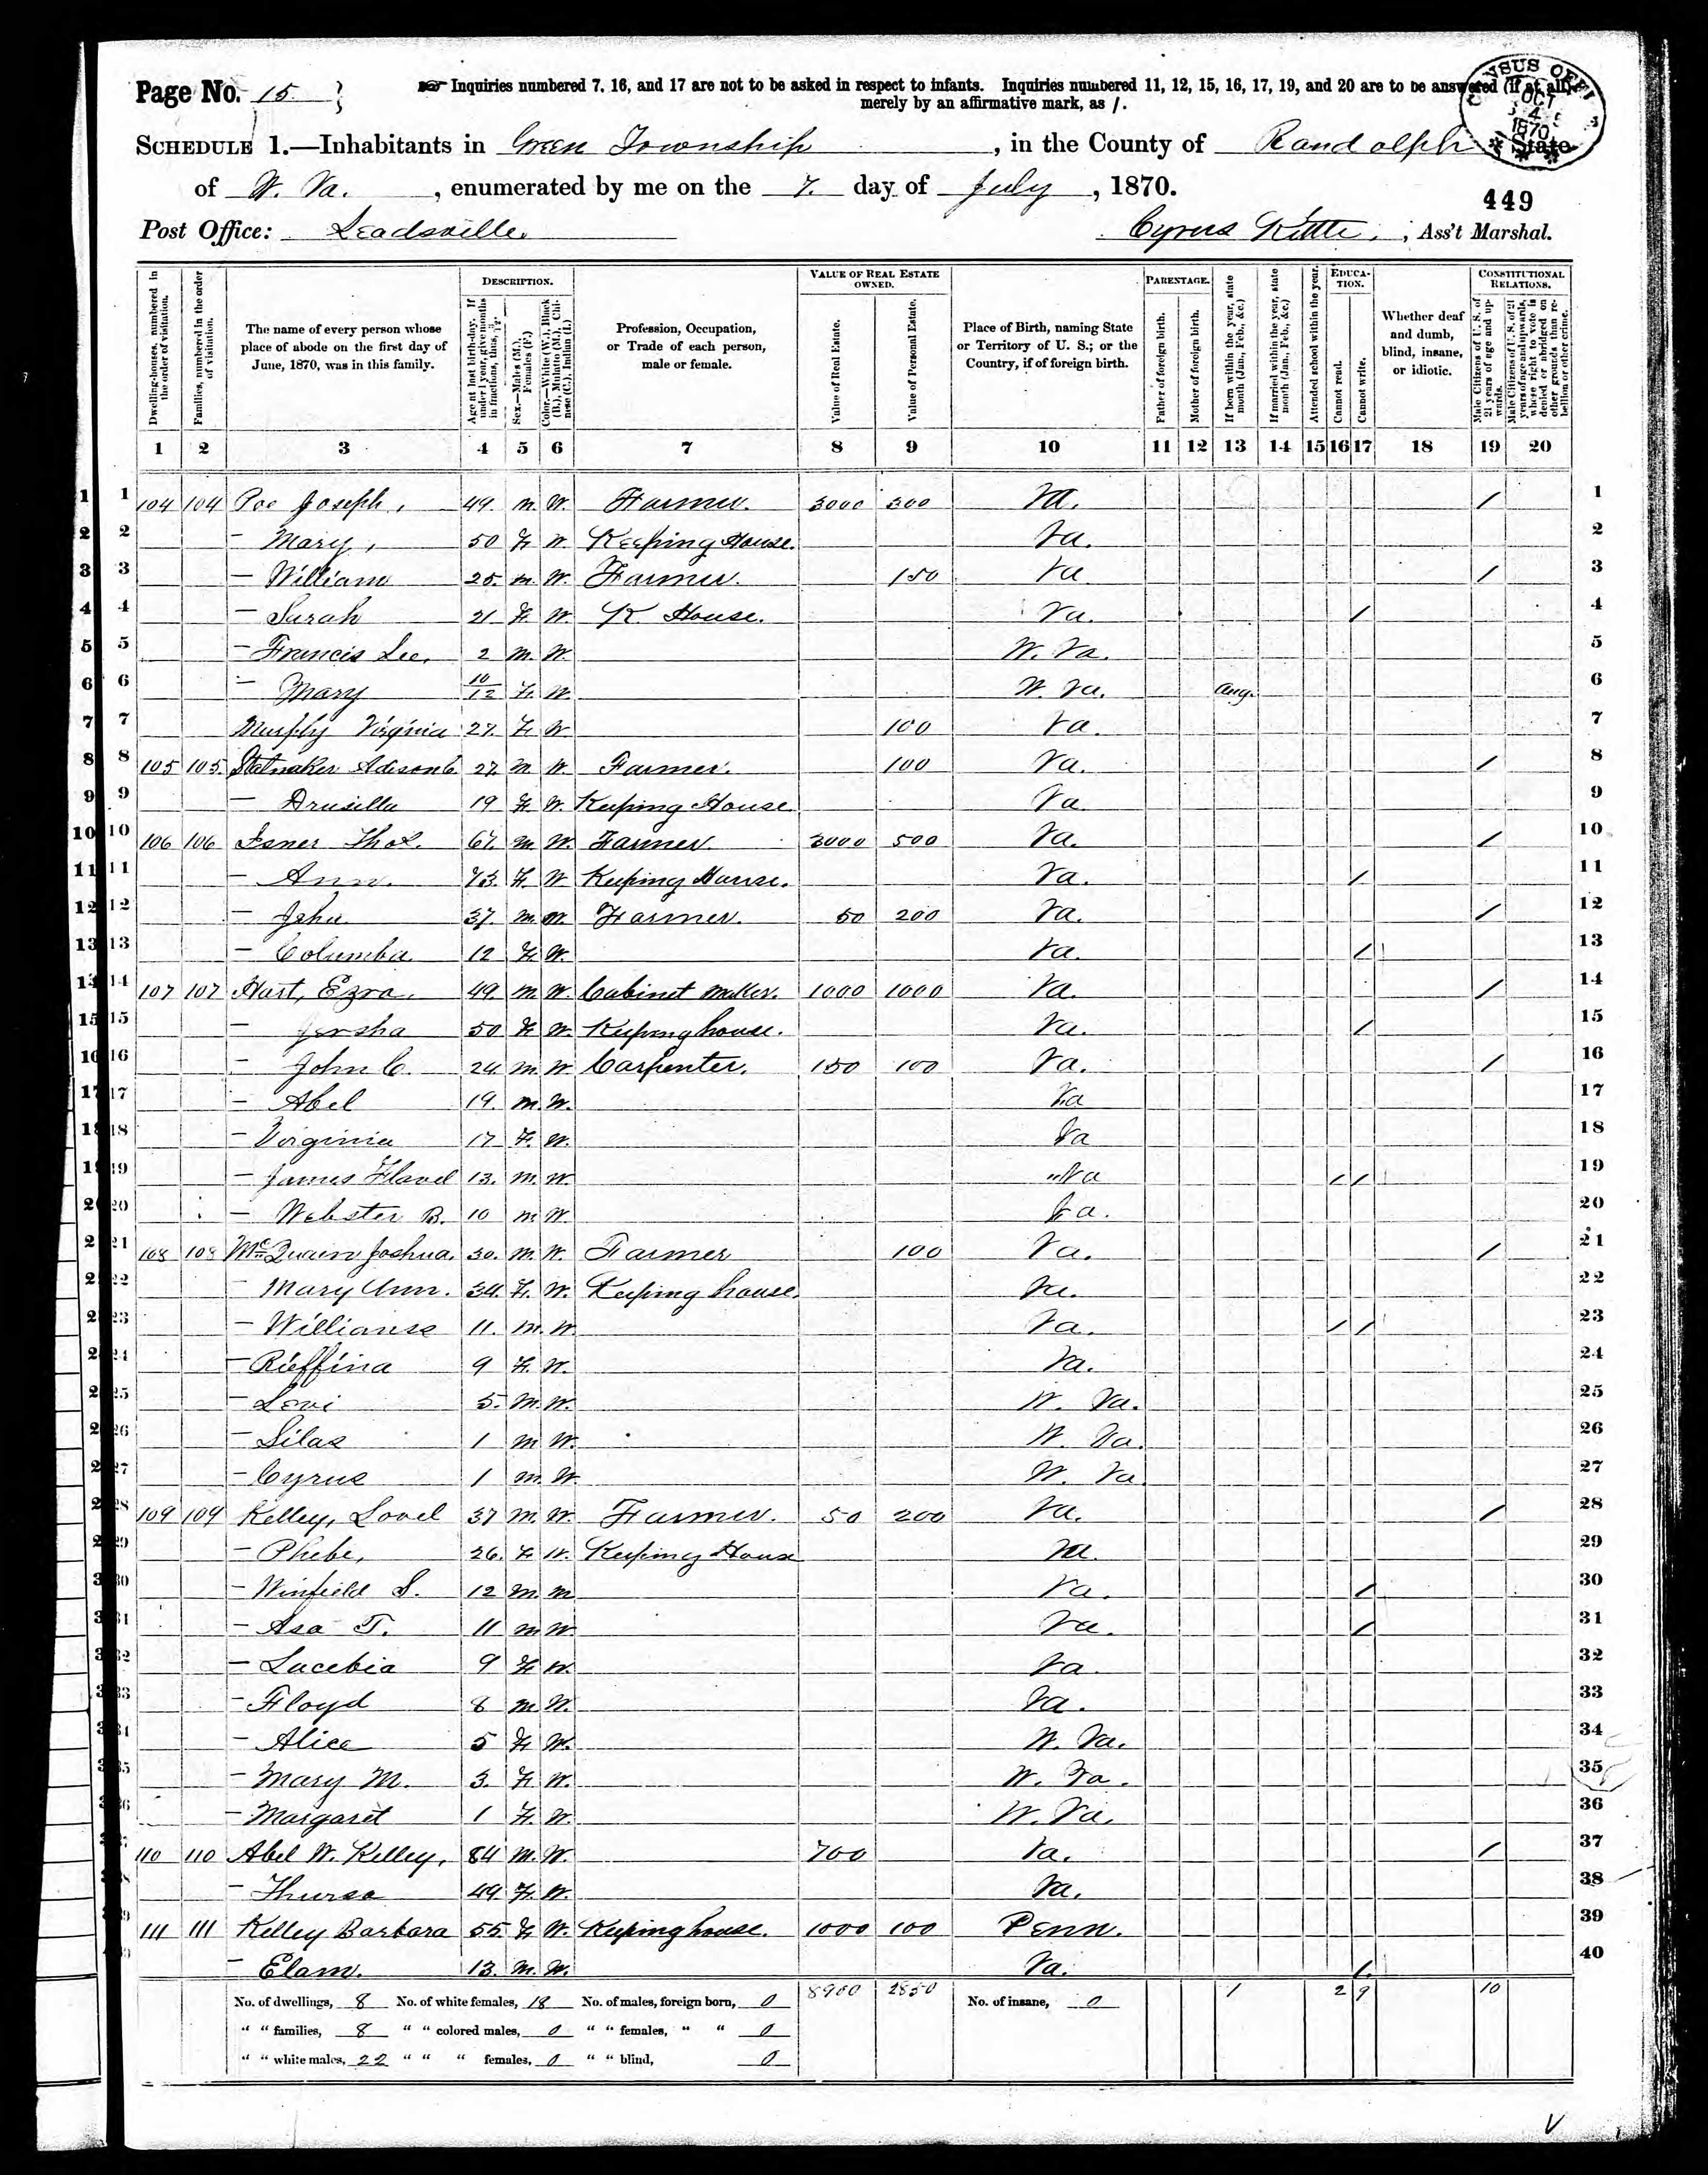 Page No. 15
☞ Inquiries numbered 7, 16, and 17 are not to be asked in respect to infants. Inquiries numbered 11, 12, 15, 16, 17, 19, and 20 are to be answered (if at all)
merely by an affirmative mark, as /.
CENSUS OFFI
OCT
4
1870
SCHEDULE 1.—Inhabitants in Green Township, in the County of Randolph State
of W. Va., enumerated by me on the 7. day of July, 1870.
449
Post Office: Leadsville. Cyrus Kittle, Ass't Marshal.
Dwelling-houses, numbered in the order of visitation.
Families, numbered in the order of visitation.
The name of every person whose place of abode on the first day of June, 1870, was in this family.
DESCRIPTION.
Age at last birth-day. If under 1 year, give months in fractions, thus, 3/12.
Sex.—Males (M.), Females (F.)
Color.—White (W.), Black (B.), Mulatto (M.), Chinese (C.), Indian (I.)
Profession, Occupation, or Trade of each person, male or female.
VALUE OF REAL ESTATE OWNED.
Value of Real Estate.
Value of Personal Estate.
Place of Birth, naming State or Territory of U. S.; or the Country, if of foreign birth.
PARENTAGE.
Father of foreign birth.
Mother of foreign birth.
If born within the year, state month (Jan., Feb., &c.)
If married within the year, state month (Jan., Feb., &c.)
Attended school within the year.
EDUCATION.
Cannot read.
Cannot write.
Whether deaf and dumb, blind, insane, or idiotic.
CONSTITUTIONAL RELATIONS.
Male Citizens of U. S. of 21 years of age and upwards.
Male Citizens of U. S. of 21 years of age and upwards, where right to vote is denied or abridged on other grounds than rebellion or other crime.
1 2 3 4 5 6 7 8 9 10 11 12 13 14 15 16 17 18 19 20
1 104 104 Poe Joseph, 49. M. W. Farmer. 3000 300 Va. / 1
2 — Mary, 50 F. W. Keeping House. Va. 2
3 — William 25. M. W. Farmer. 150 Va / 3
4 — Sarah 21 F. W. K House. Va. / 4
5 — Francis Lee. 2 M. W. W. Va. 5
6 — Mary 10/12 F. W. W. Va. Aug. 6
7 Murphy Virginia 27. F. W 100 Va. 7
8 105 105. Stalnaker Adison C. 27. M W. Farmer. 100 Va. / 8
9 — Drusilla 19 F. W. Keeping House Va 9
10 106 106 Isner Thos. 67. M W. Farmer 3000 500 Va. / 10
11 — Ann. 73. F. W Keeping House. Va. / 11
12 — Jehu 37. M. W. Farmer. 50 200 Va. / 12
13 — Columba 12 F. W. Va. / 13
14 107 107 Hart, Ezra. 49. M W. Cabinet Maker. 1000 1000 Va. / 14
15 — Jersha 50 F. W. Keeping house. Va. / 15
16 — John C. 24. M. W. Carpenter. 150 100 Va. / 16
17 — Abel 19. M. W. Va 17
18 — Virginia 17 F. W. Va 18
19 — James Flavel 13. M. W. Va / / 19
20 — Webster B. 10 M W. Va. 20
21 108 108 McQuain Joshua. 30. M. W. Farmer 100 Va. / 21
22 — Mary Ann. 34. F. W. Keeping house. Va. 22
23 — Williams 11. M. W. Va. / / 23
24 — Rieffina 9 F. W. Va. 24
25 — Levi 5. M. W. W. Va. 25
26 — Silas 1 M W. W. Va. 26
27 — Cyrus 1 M. W. W. Va 27
28 109 109 Kelley, Lovel 37 M. W. Farmer. 50 200 Va. / 28
29 — Phebe, 26. F W. Keeping House Va. 29
30 — Winfield S. 12 M. M Va. / 30
31 — Asa T. 11 M W. Va. / 31
32 — Lucebia 9 F. W. Va. 32
33 — Floyd 8 M. W. Va. 33
34 — Alice 5 F. W. W. Va. 34
35 — Mary M. 3. F. W. W. Va. 35
36 — Margaret 1 F. W. W. Va. 36
37 110 110 Abel W. Kelley, 84 M. W. 700 Va. / 37
38 — Thursa 49 F. W. Va. 38
39 111 111 Kelley Barbara 55. F W. Keeping house. 1000 100 Penn. 39
40 — Elam. 13. M. W. Va. / 40
No. of dwellings, 8 No. of white females, 18 No. of males, foreign born, 0 8900 2850 No. of insane, 0 1 2 9 10
" " families, 8 " " colored males, 0 " " females, " " 0
" " white males, 22 " " " females, 0 " " blind, 0
V